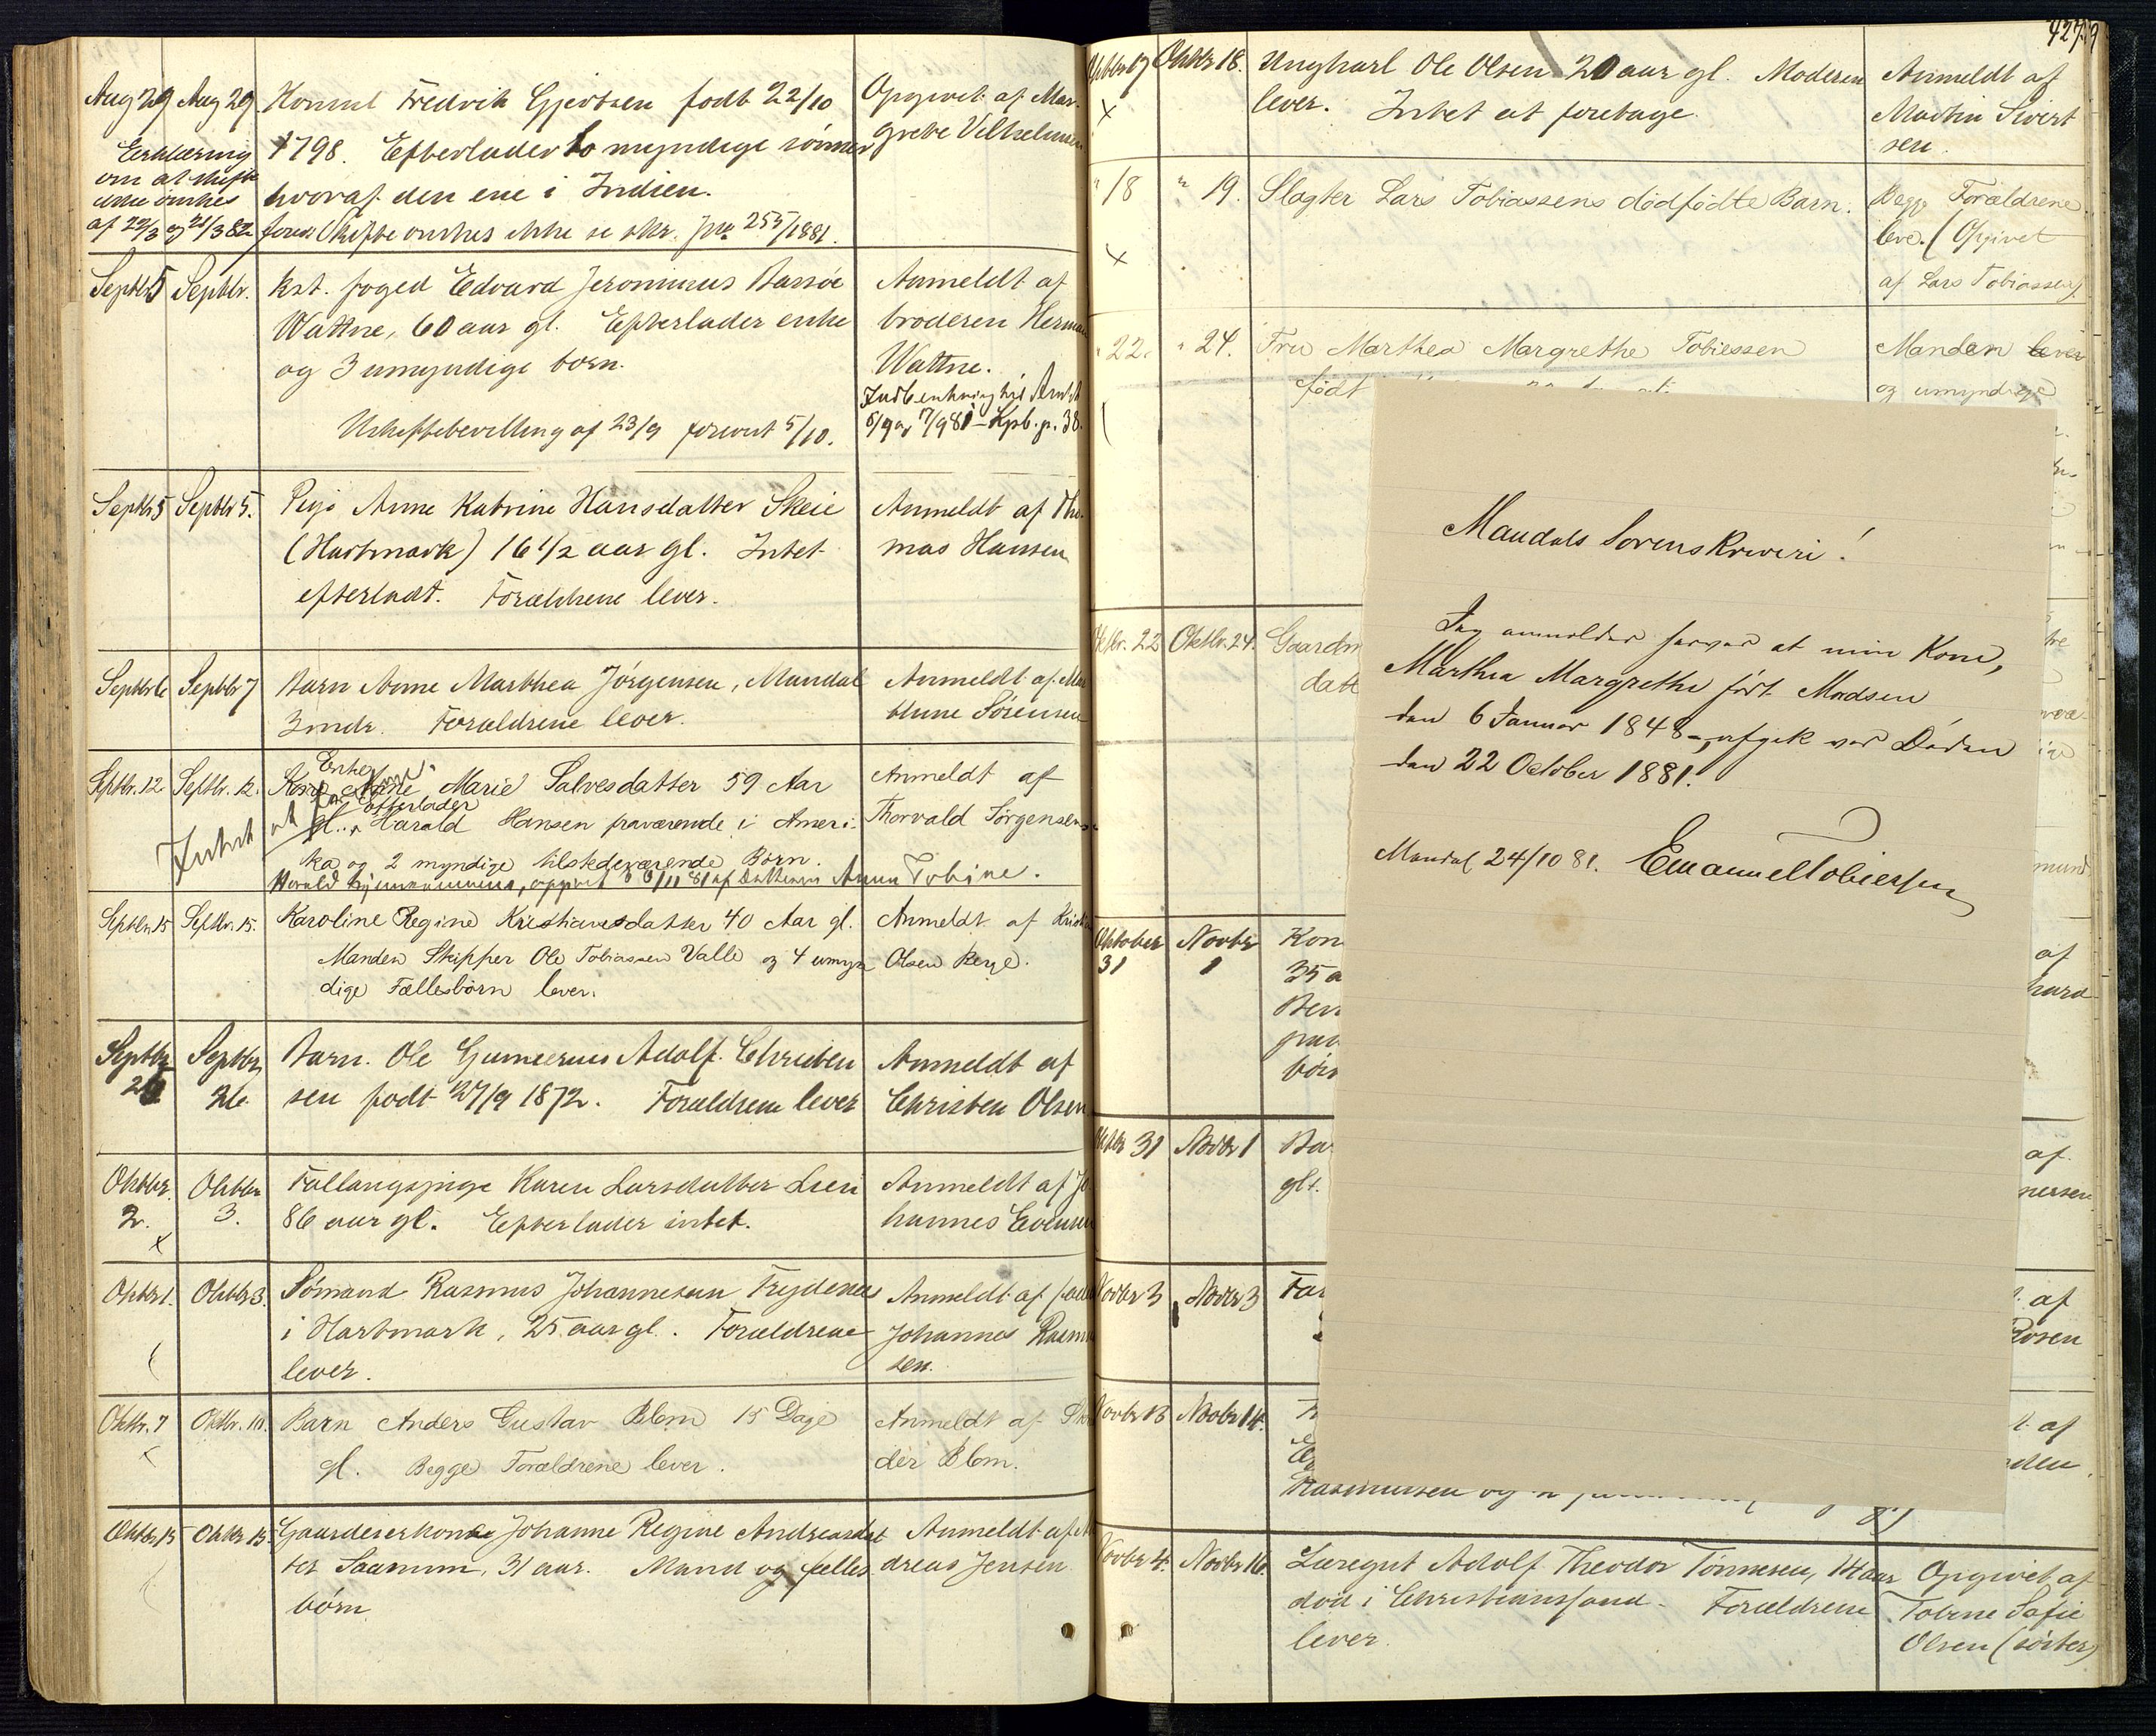 Aug 29 Aug 29 Konsul Fredrik Gjertsen født 22/10
1798. Efterlader to myndige sönner
hvoraf den ene i Indien.
Skifte önskes ikke se skr. 255/1881.
Erklæring
om at skifte
ikke önskes
af 22/3 og 21/3 82
Opgivet af Mar-
grete Vilhelmsen
Septbr 5 Septbr. kst. foged Edvard Jeronimus Bassöe
Wattne, 60 aar gl. Efterlader enke
og 3 umyndige børn.
Uskiftebevilling af 23/9 forevist 5/10.
Anmeldt af
broderen Herman
Wattne.
Indberetning til Amtet
5/9 og 7/9 81 – Kpb. p. 38.
Septbr 5 Septbr 5. Pige Anne Katrine Hansdatter Skeie
(Hartmark) 16 1/2 aar gl. Intet
efterladt. Forældrene lever.
Anmeldt af Tho-
mas Hansen
Septbr 6 Septbr 7 Barn Anne Marthea Jörgensen, Mandal
3 mdr. Forældrene lever.
Anmeldt af
Sörensen
Septbr. 12. Septbr. 12. Enke
Marie Salvesdatter 59 Aar
efterlader
gl., Harald Hansen fraværende i Ameri-
ka og 2 myndige tilstedeværende Børn.
Harald hjemkommen, opgivet 6/11 81 af Datteren Anna Tobine.
Anmeldt af
Thorvald Jørgensen
Septbr. 15 Septbr. 15. Karoline Regine Kristiansdatter 40 Aar gl.
Manden Skipper Ole Tobiassen Valle og 4 umyn
dige Fællesbørn lever.
Anmeldt af
Olsen Berge.
Septbr Septbr Barn. Ole Gumerius Adolf Christen
26. sen født 27/9 1872. Forældrene lever
Anmeldt af
Christen Olsen
Oktbr. Oktbr Fattigpige Karen Larsdatter
2. 3. 86 aar gl. Efterlader intet.
x
Anmeldt af Jo
hannes Evensen
Oktbr 1. Oktbr 3. Sömand Rasmus Johannesen Frydenes
i Hartmark, 25 aar gl. Forældrene
lever.
Anmeldt af
Johannes Rasmu
sen.
Oktbr. 7 Oktbr. 10. Barn Anders Gustav Blom 15 Dage
gl. Begge Forældrene lever.
Anmeldt af
der Blom.
Oktbr 15 Oktbr 15. Gaardeierkone Johanne Regine Andreasdat
ter Saanum, 31 aar. Mand og felles
börn
Anmeldt af An
dreas Jensen
427.
Oktbr 18. Ungkarl Ole Olsen 20 aar gl. Moderen
lever. Intet at foretage.
x
Anmeldt af
Martin Sivert
sen.
" 18 " 19. Slagter Lars Tobiassens dödfödte Barn.
x
Begge Forældrene
leve. (Opgivet
af Lars Tobiassen)
" 22. " 24. Fru Marthea Margrethe Tobiessen
født
Manden lever
og umyndige
Mandals Sorenskriveri!
Jeg anmelder herved at min Kone,
Marthea Margrethe født Madsen
den 6 Januar 1848 afgik ved Døden
den 22 October 1881.
Mandal 24/10 81. Emanuel Tobiessen
Oktbr. 22 Oktbr. 24. Gaardm
datt
Oktober Novbr Kon
31 1 35 a
af
hard
Oktbr 31 Novbr 1 Ba
gl.
af
nersen
Novbr 3 Novbr 3
af
Rosen
Novbr 13 Novbr 14.
af
Rasmussen og
Novbr 4. Novbr 16. Læregut Adolf Theodor Tönnesen, 14 aar
död i Christianssand. Forældrene
lever.
Opgivet af
Tobine Sofie
Olsen (söster)